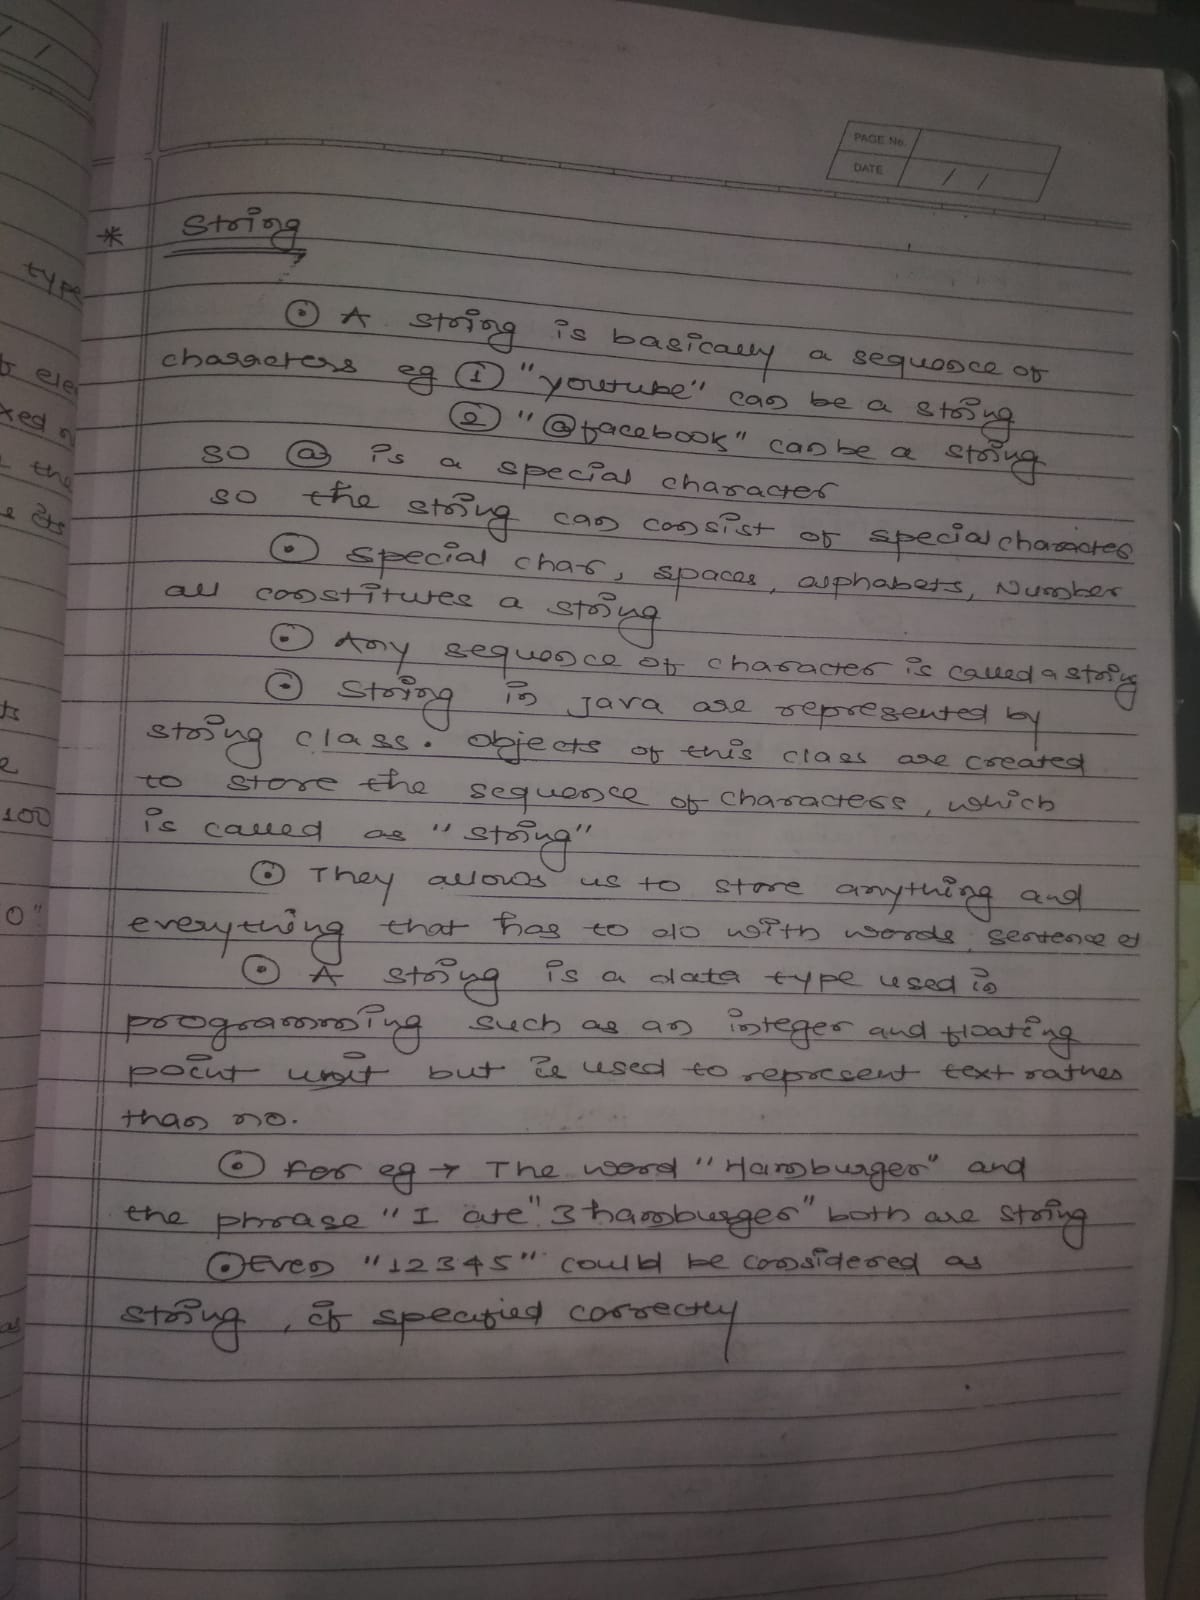 PAGE No.
DATE / /
* String
⊙ A string is basically a sequence of
characters eg ① "youtube" can be a string
② "@facebook" can be a string
so @ is a special character
so the string can consist of special character
⊙ special char, spaces, alphabets, Number
all constitutes a string
⊙ Any sequence of character is called a string
⊙ String in java are represented by
string class. Objects of this class are created
to store the sequence of characters, which
is called as "string"
⊙ They allows us to store anything and
everything that has to do with words, sentence
⊙ A string is a data type used in
programming such as an integer and floating
point unit but is used to represent text rather
than no.
⊙ For eg → The word "Hamburger" and
the phrase "I ate" 3 hamburger" both are string
⊙ Even "12345" could be considered as
string, if specified correctly
/ /
type
ele
xed
the
100
0"
as